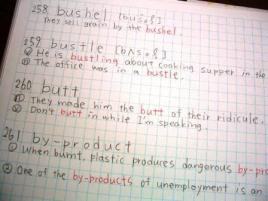 258 bushel [buʃəl]
They sell grain by the bushel.
259 bustle [bʌsəl]
① He is bustling about cooking supper in the
② The office was in a bustle.
260 butt
① They made him the butt of their ridicule.
② Don't butt in while I'm speaking.
261 by-product
① When burnt, plastic produces dangerous by-pro
② One of the by-products of unemployment is an